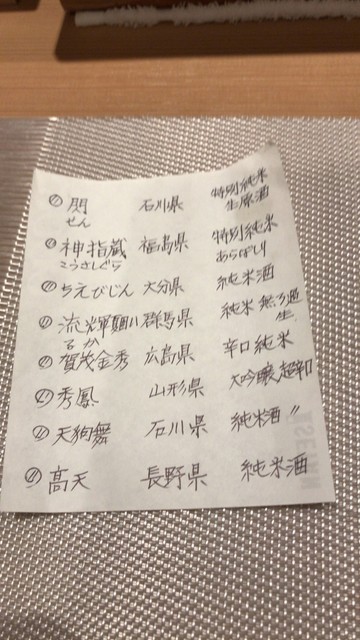 閃 石川県 特別純米
せん 生原酒
神指蔵 福島県 特別純米
こうさしぐら あらばしり
ちえびじん 大分県 純米酒
流輝 群馬県 純米 無ろ過
るか 生
賀茂金秀 広島県 辛口純米
秀鳳 山形県 大吟醸 超辛口
天狗舞 石川県 純米酒 〃
高天 長野県 純米酒